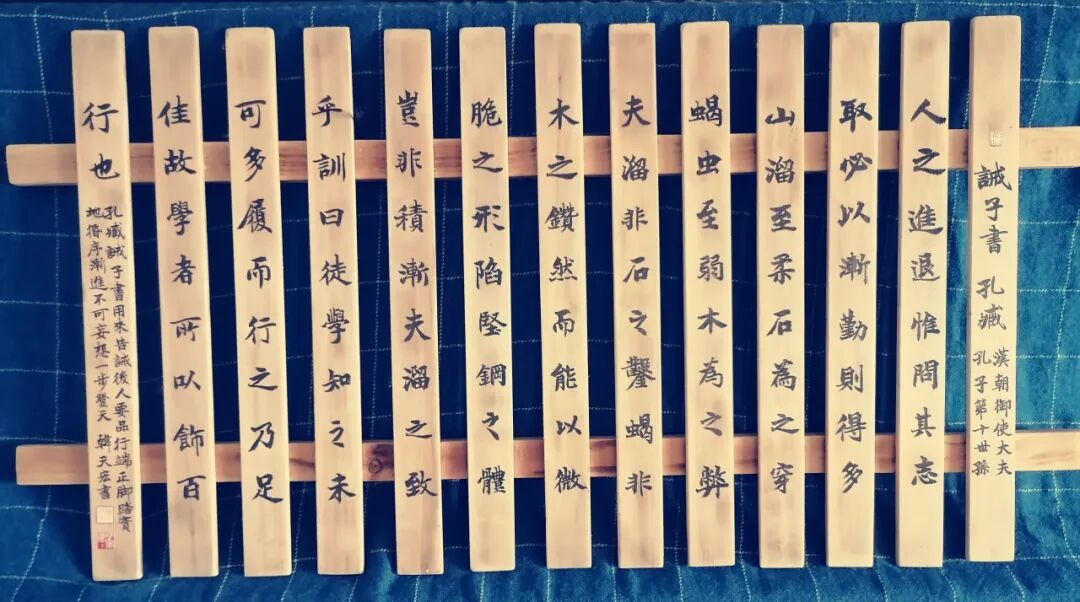 誡子書 孔臧
漢朝御使大夫
孔子第十世孫
人之進退惟問其志
取必以漸勤則得多
山溜至柔石為之穿
蝎虫至弱木為之弊
夫溜非石之鑿蝎非
木之鑽然而能以微
脆之形陷堅鋼之體
豈非積漸夫溜之致
乎訓曰徒學知之未
可多履而行之乃足
佳故學者所以飾百
行也
孔臧誡子書用來告誡後人要品行端正脚踏實
地循序漸進不可妄想一步登天 韓天宏書